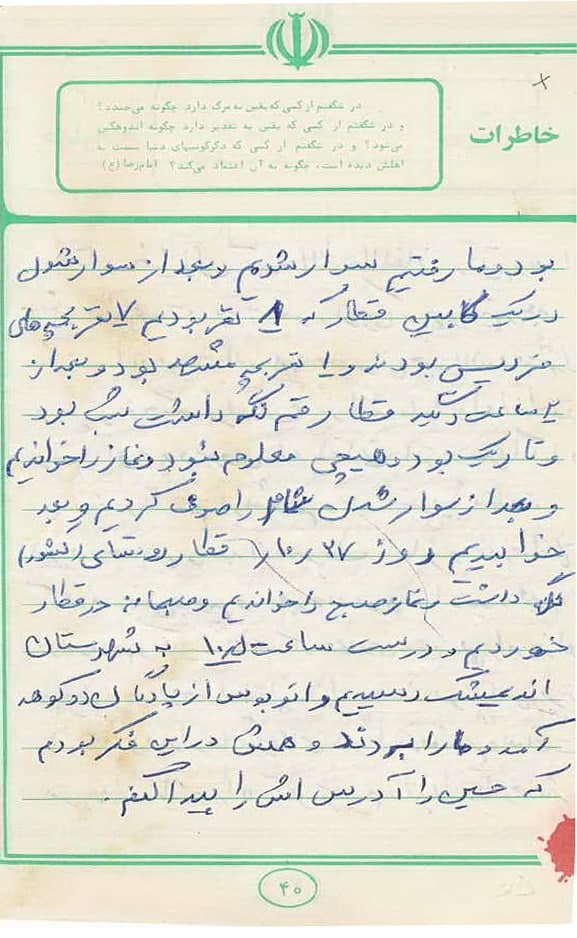 خاطرات
در شگفتم از کسی که یقین به مرگ دارد چگونه می‌خندد؟
و در شگفتم از کسی که یقین به تقدیر دارد چگونه اندوهگین
می‌شود؟ و در شگفتم از کسی که دگرگونیهای دنیا نسبت به
اهلش دیده است، چگونه به آن اعتماد می‌کند؟ امام رضا (ع)
بود و ما رفتیم سوار شویم و بعد از سوار شدن
در یک کابین قطار که ۸ نفر بودیم ۷ نفر بچه‌های
بودند و ۱ نفر بچه مشهد بود و بعد از
ساعت قطار نگه داشت شب بود
و تاریک بود و هیچی معلوم نبود و نماز را خواندیم
و بعد از سوار شدن شام را صرف کردیم و بعد
خوابیدیم روز قطار روستای
نگه داشت و نماز صبح را خواندیم و صبحانه در قطار
خوردیم و درست ساعت به شهرستان
اندیمشک رسیدیم و اتوبوس از پادگان دوکوهه
آمد و ما را بردند و همش در این فکر بودم
که حسین را آدرس اش را پیدا کنم.
۴۰